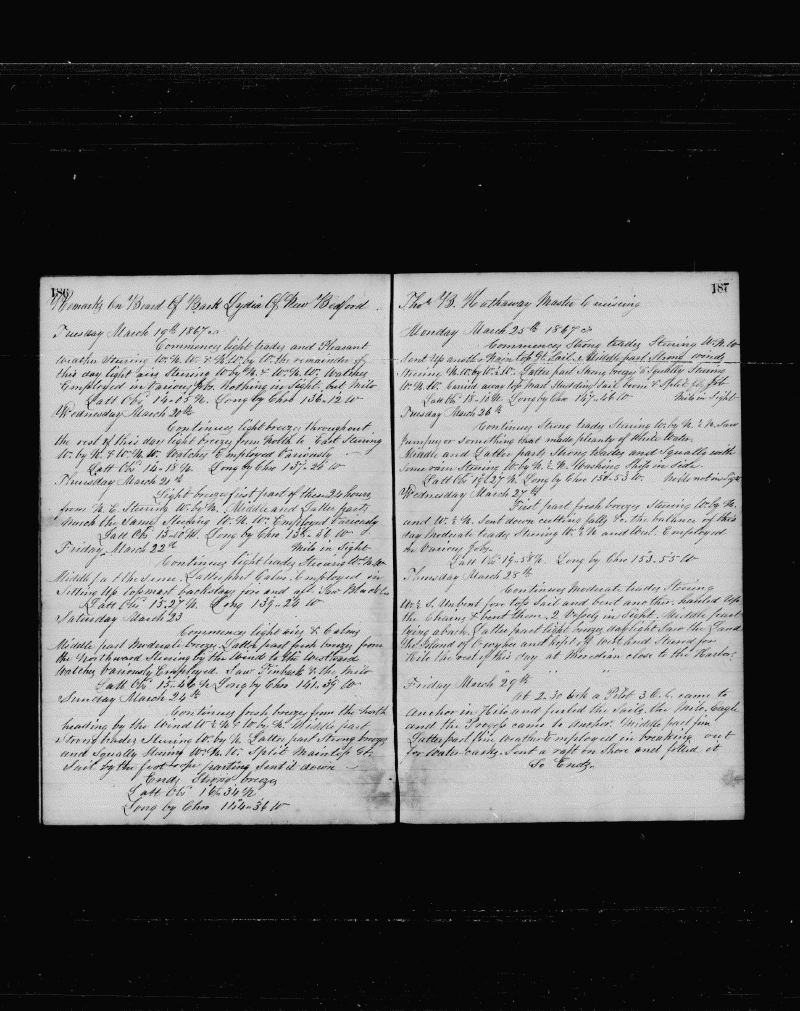 186
Remarks On Board Of Bark Lydia Of New Bedford
Tuesday March 19th 1867
Commences light trades and Pleasant
weather steering W.N.W. & N.W. by W. the remainder of
this day light airs Steering W by N. & W.N.W. Watches
Employed in Various jobs. Nothing in Sight. but Milo
Latt Obs 14-03 N. Long by Chro 136-12 W
Wednesday March 20th
Continues light breeze throughout
the rest of this day light breeze from North to East Steering
W. by N. & W.N.W. Watches Employed Variously
Latt Obs 14-18 N. Long by Chro 137-26 W
Thursday March 21st
Light breeze first part of these 24 hours
from N.E. Steering W. by N. Middle and Latter parts
much the same Steering W.N.W. Employed Variously
Latt Obs Long by Chro W
Friday March 22nd Milo in Sight
Continues light trades Steering W.N.W
Middle part the same. Latter part Calm. Employed in
Setting Up topmast backstays fore and aft. Saw
Latt Obs 15-27 N. Long 139-24 W
Saturday March 23
Commences light airs & Calms
Middle part Moderate breeze Latter part fresh breeze from
the Northward Steering by the Wind to the Westward
Watches Variously Employed. Saw Finback & the Milo
Latt Obs 15-46 N Long by Chro 141-39 W
Sunday March 24th
Continues fresh breeze from the North
heading by the Wind W & N & W by N. Middle part
Strong trades Steering W. by N. Latter part Strong breeze
and Squally Steering W.N.W. Split Maintop Gt.
Sail by the foot rope parting Sent it down
Ends Strong breeze
Latt Obs 16-34 N
Long by Chro 144-36 W
187
Thos B. Hathaway Master Cruising
Monday March 25th 1867
Commences Strong trades Steering W.N.W
Sent Up another Main top Gt. Sail. Middle part Strong winds
Steering N.W. by W. & W. Latter part Strong breeze & Squally Steering
W.N.W. Carried away top mast Studding Sail boom & Split Jib
Latt Obs 18-10 N. Long by Chro 147-46 W Milo in Sight
Tuesday March 26th
Continues Strong trades Steering W. by N. & N. Saw
Jumper or something that made plenty of White Water.
Middle and Latter parts Strong trades and Squalls with
some rain Steering W. by N. & N. Washing Ship in side
Latt Obs 19-27 N. Long by Chro 150-53 W. Milo not in Sight
Wednesday March 27th
First part fresh breezes Steering W. by N.
and W. & N. Sent down cutting falls &c. the balance of this
day Moderate trades Steering W. & N and West. Employed
in Various Jobs.
Latt Obs 19-58 N. Long by Chro 153-55 W
Thursday March 28th
Continues Moderate trades Steering
W. & S. Unbent fore top Sail and bent another. hauled Up
the Chains & bent them. 2 Vessels in Sight. Middle part
lying aback. Latter part light breeze daylight Saw the Land
The Island of Owyhee and kept off West and Steered for
Hilo the rest of this day at Meridian close to the Harbor.
Friday March 29th
At 2.30 took a Pilot 3 O.C. came to
Anchor in Hilo and furled the Sails. the Milo. Eagle
and the came to Anchor. Middle part fine
Latter part fine Weather employed in breaking out
for water casks. Sent a raft on Shore and filled it
So Ends.